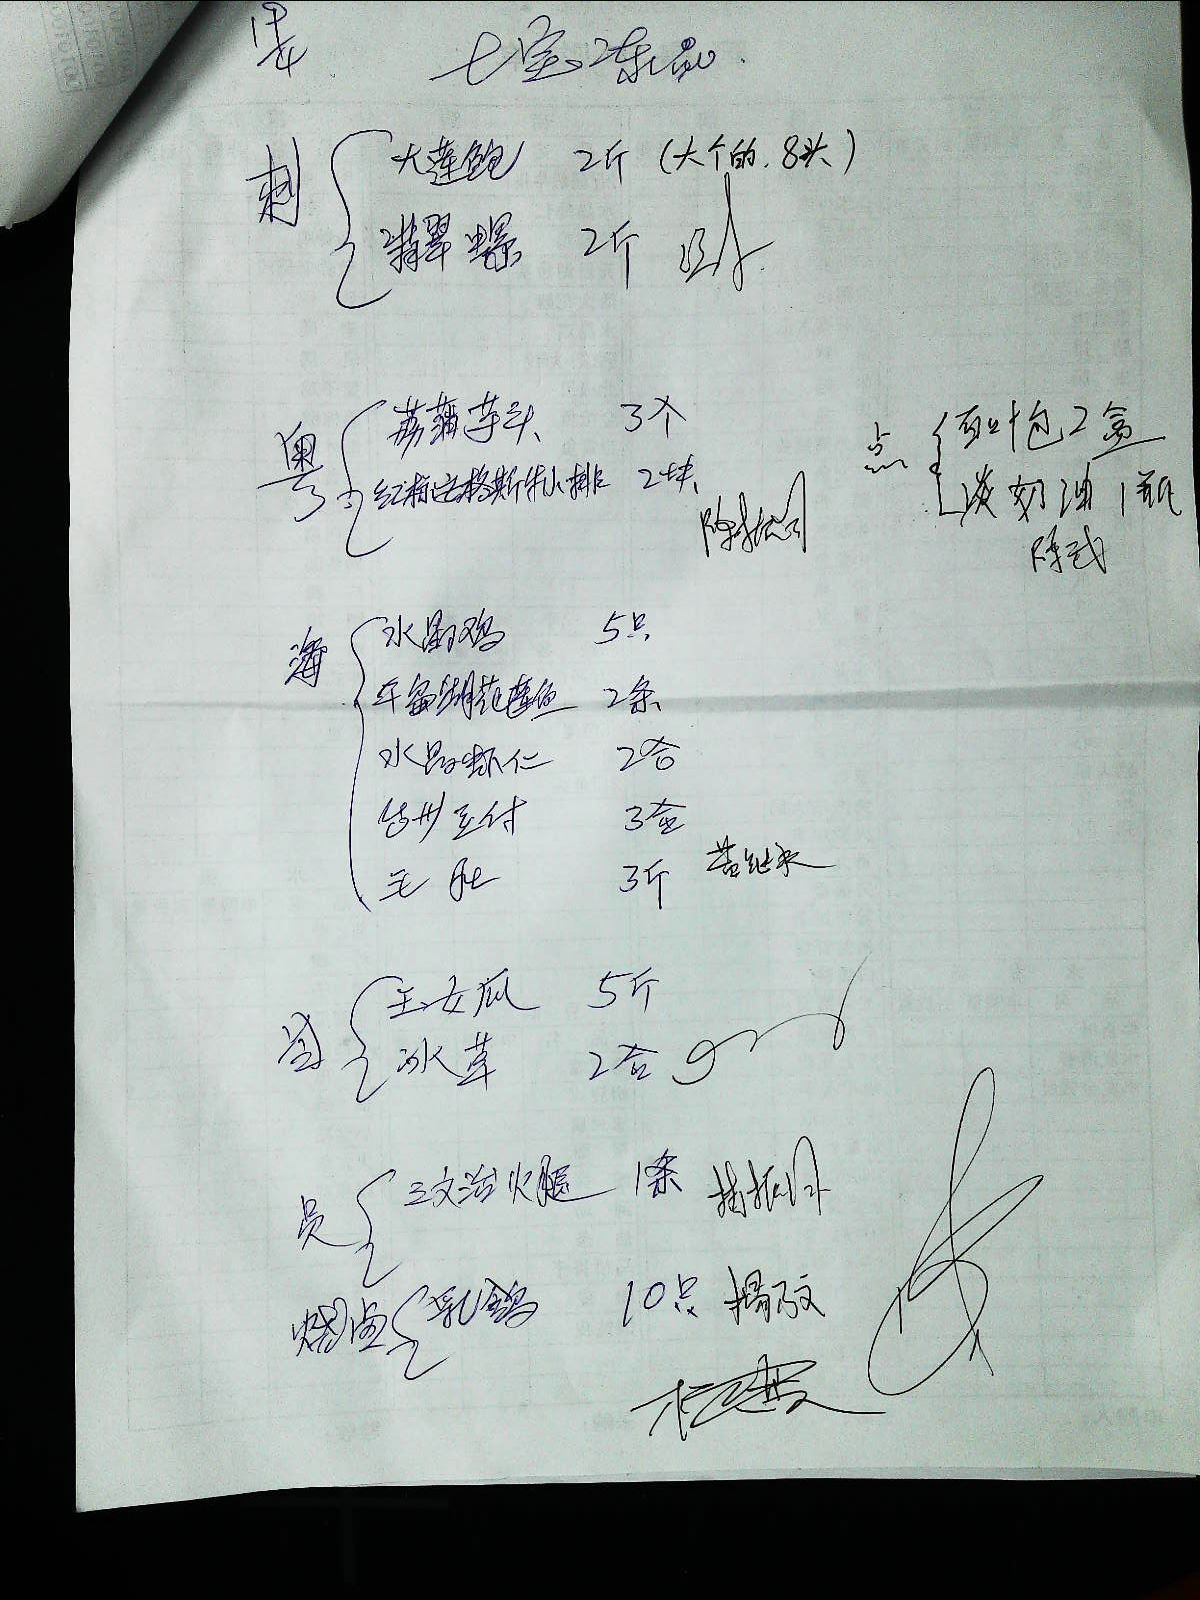 七宝冻品
刺
大连鲍 2斤 (大个的.8头)
翡翠螺 2斤
粤
荔蒲芋头 3个
红标安格斯牛小排 2块
点
包2盒
淡奶油1瓶
海
水晶鸡 5只
千岛湖花莲鱼 2条
水晶虾仁 2合
台州豆付 3盒
毛肚 3斤
玉女瓜 5斤
冰草 2合
员
三文治火腿 1条
烧卤
乳鸽 10只